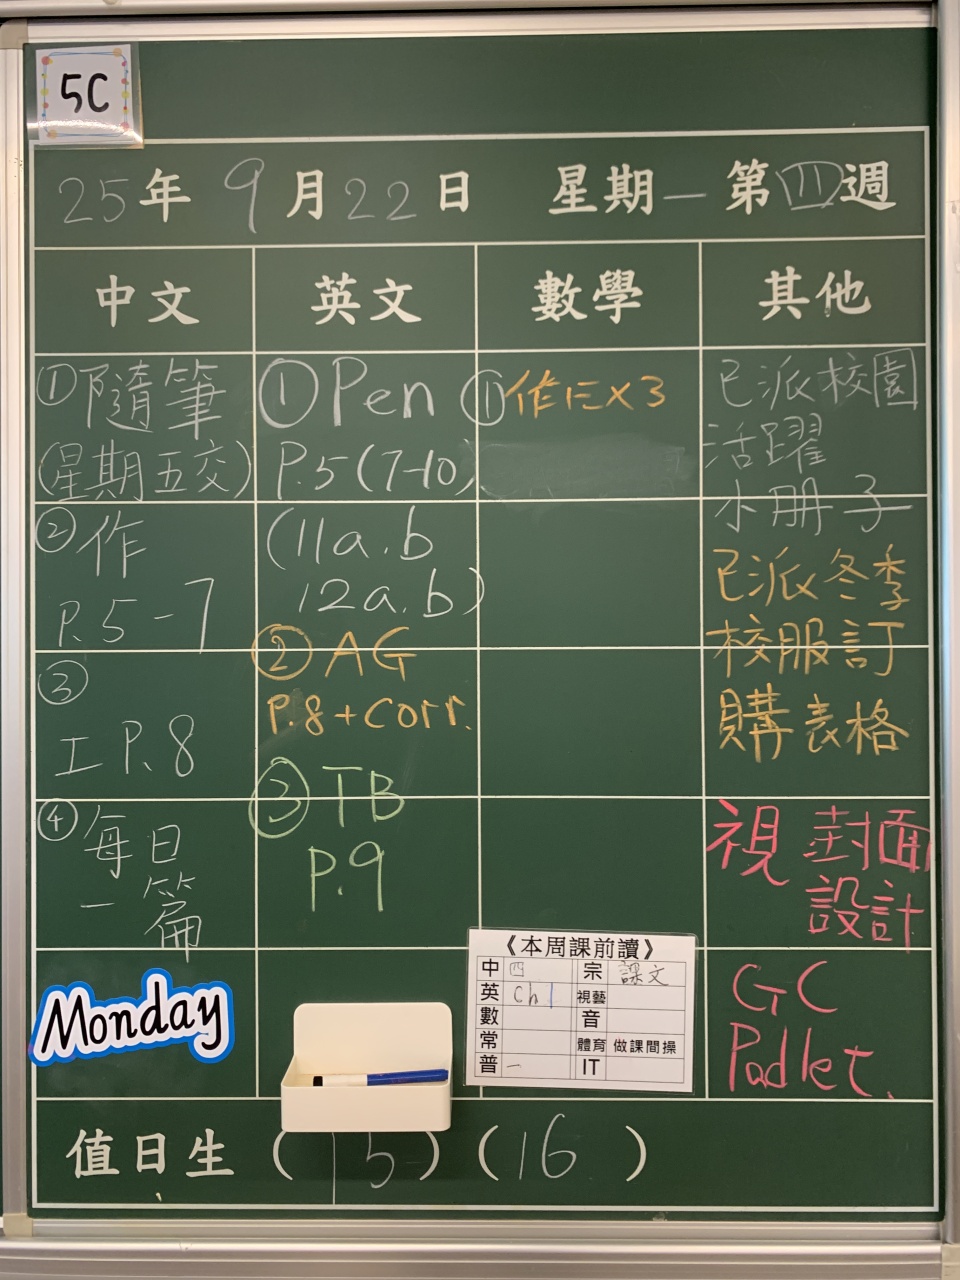 5C
25年 9月22日 星期一 第四週
中文 英文 數學 其他
①隨筆
(星期五交)
②作
P.5-7
③
工 P.8
④每日
一篇
①Pen
P.5(7-10)
(11a.b
12a.b)
②AG
P.8+corr.
③TB
P.9
①作正x3
已派校園
活躍
小冊子
已派冬季
校服訂
購表格
視 封面
設計
GC
Padlet.
Monday
《本周課前讀》
中 四 宗 課文
英 ch 1 視藝
數 音
常 體育 做課間操
普 一 IT
值日生 (15) (16)